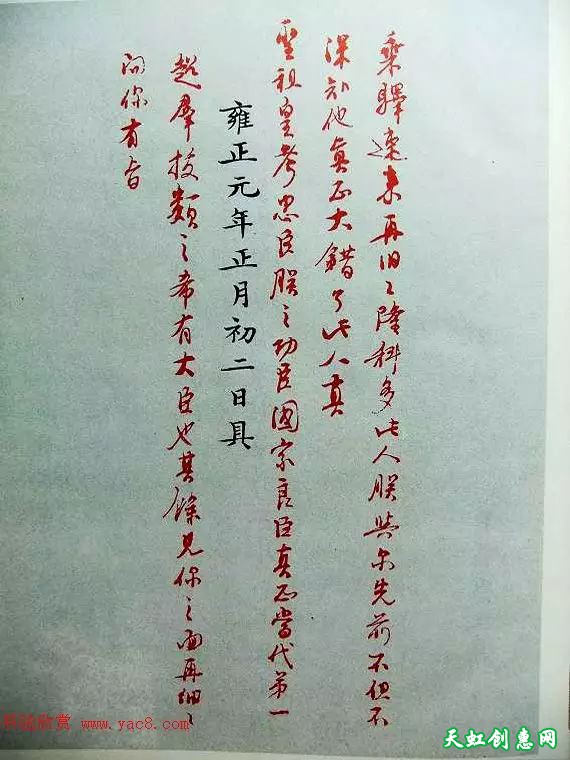 乘驛速来再舅舅隆科多此人朕與尔先前不但不
深知他真正大錯了此人真
聖祖皇考忠臣朕之功臣國家良臣真正當代第一
雍正元年正月初二日具
超羣拔類之希有大臣也其餘見你之面再細細
問你有旨
欣赏 www.yac8.com
天虹创惠网